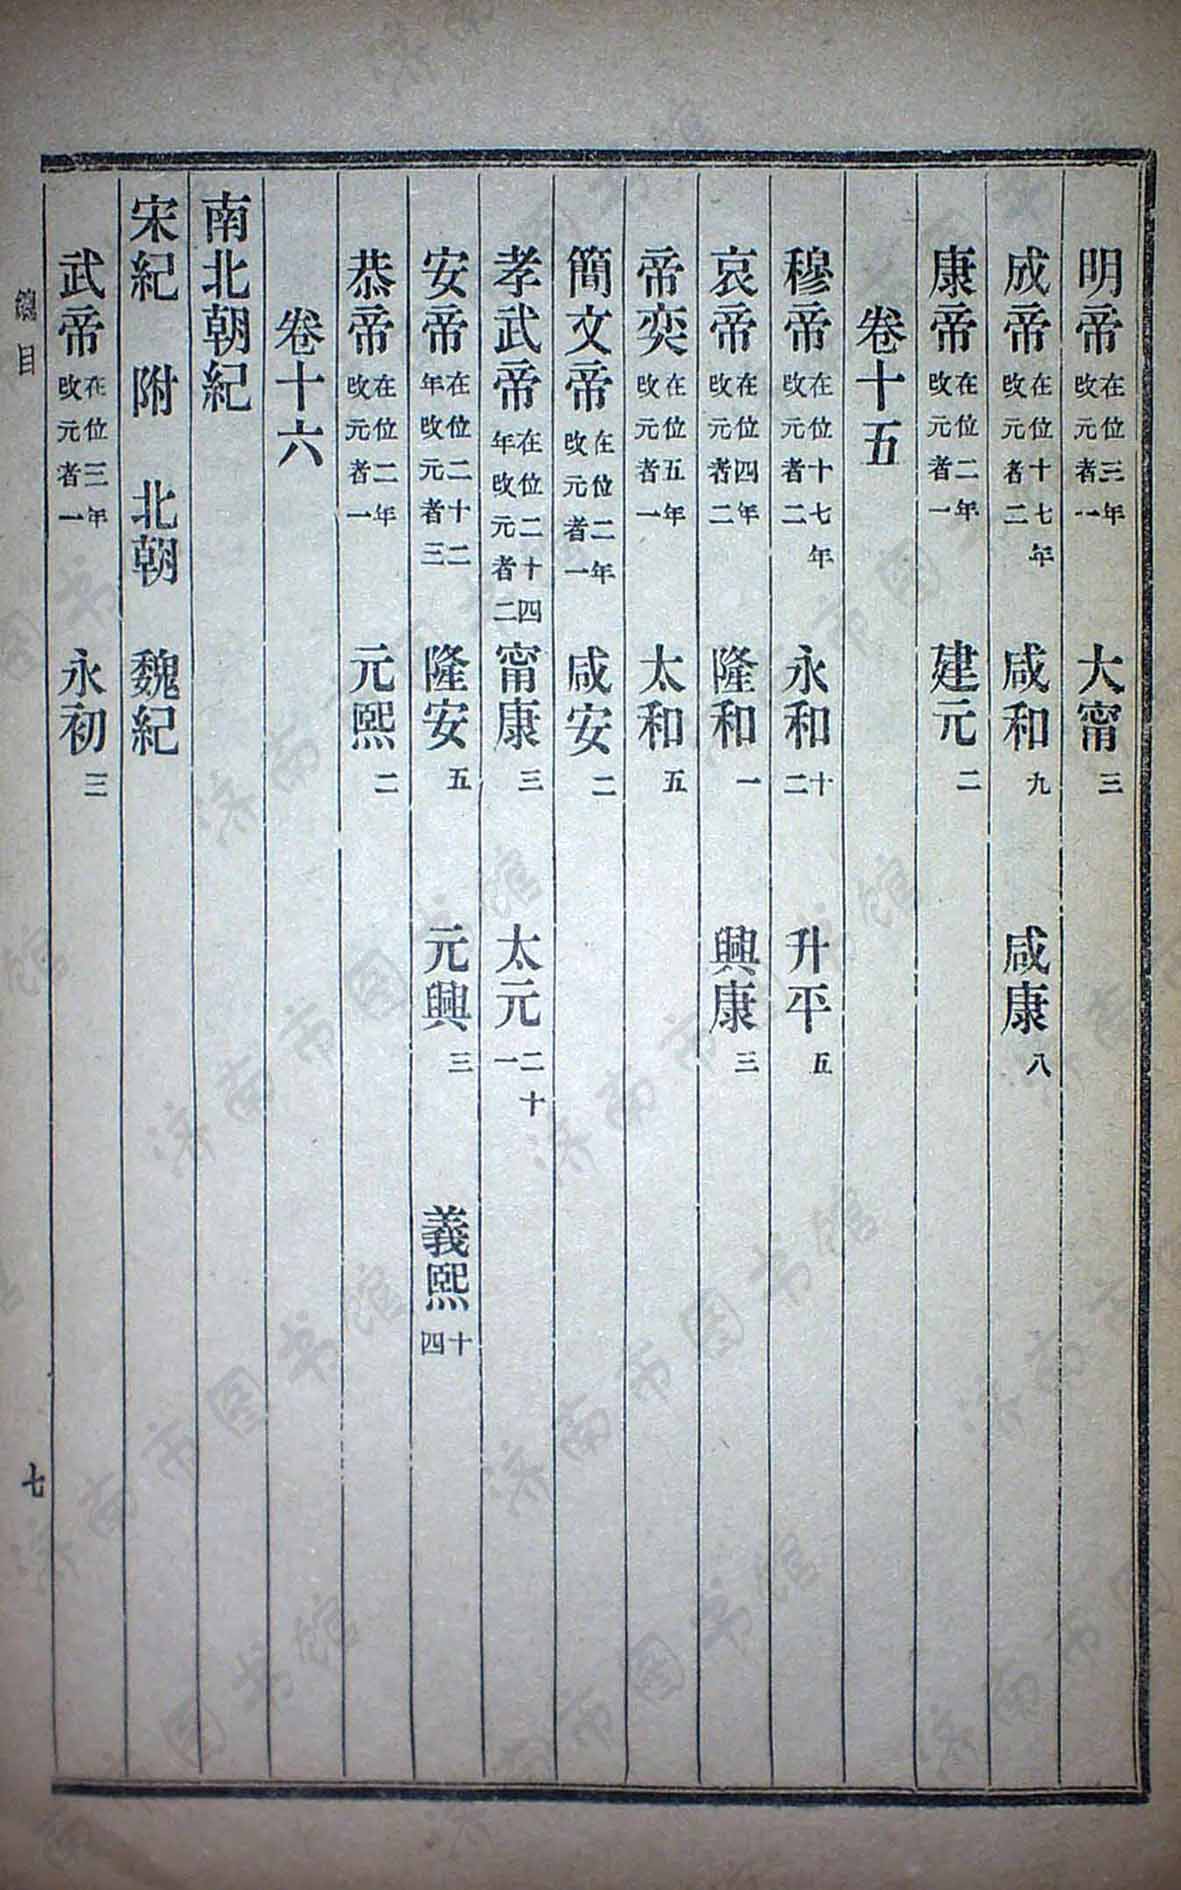 明帝 在位三年改元者一 大甯 三
成帝 在位十七年改元者二 咸和 九 咸康 八
康帝 在位二年改元者一 建元 二
卷十五
穆帝 在位十七年改元者二 永和 十二 升平 五
哀帝 在位四年改元者二 隆和 一 興康 三
帝奕 在位五年改元者一 太和 五
簡文帝 在位二年改元者一 咸安 二
孝武帝 在位二十四年改元者二 甯康 三 太元 二十一
安帝 在位二十二年改元者三 隆安 五 元興 三 義熙 十四
恭帝 在位二年改元者一 元熙 二
卷十六
南北朝紀
宋紀 附 北朝 魏紀
武帝 在位三年改元者一 永初 三
總目
七
济南市图书馆